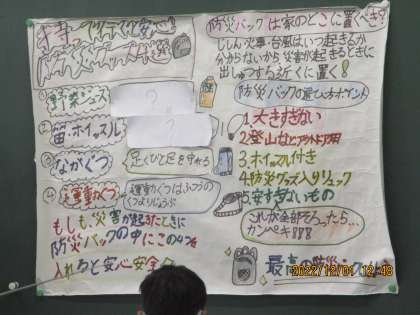 防災グッズ4選
①野菜ジュース
?
②笛 ホイッスル
?
③ながぐつ
足くびと足を守れる
④運動ぐつ
運動ぐつはふつうの
くつよりじょうぶ
もしも、災害が起きたときに
防災バックの中にこの4つを
入れると安心安全
防災バックは家のどこに置くべき?
じしん・火事・台風はいつ起きるか
分からないから災害が起きるときに
出しゅつする近くに置く!
防災バックの選び方ポイント
1.大きすぎない
2.登山などアウトドア用
3.ホイッスル付き
4.防災グッズ入りリュック
5.安すぎないもの
これが全部そろったら…
カンペキ!!!
最高の防災
2022/12/01 12:48